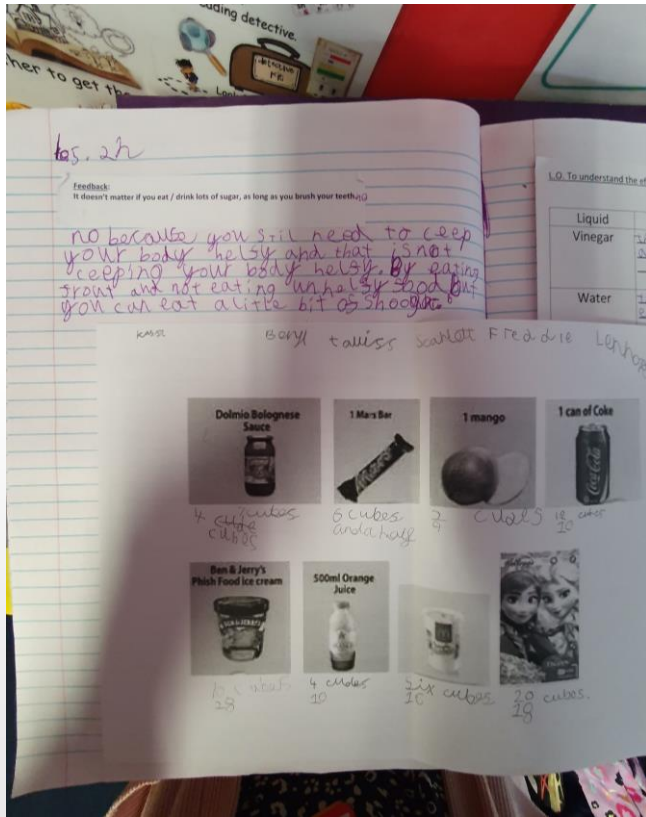 uding detective.
her to get the
detective
Feedback:
It doesn't matter if you eat / drink lots of sugar, as long as you brush your teeth.
no because you still need to ceep
your body helsy and that is not
ceeping your body helsy. By eating
frout and not eating unhelsy food but
you can eat a little bit of shoogar.
L.O. To understand the ef
Liquid
Vinegar
Water
Beryl Scarlott Freddie
Dolmio Bolognese
Sauce
1 Mars Bar
1 mango
1 can of Coke
Coca-Cola
4 cubes
cubes
6 cubes
and a half
cubes
10
Ben & Jerry's
Phish Food ice cream
500ml Orange
Juice
BEN & JERRY'S
FROZEN
28
4 cubes
10
six cubes
20 cubes.
18